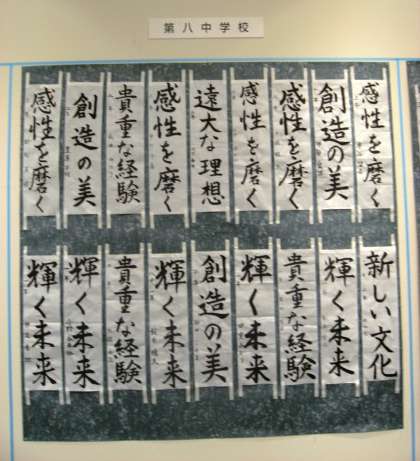 第八中学校
感性を磨く
創造の美
感性を磨く
感性を磨く
遠大な理想
感性を磨く
貴重な経験
創造の美
感性を磨く
新しい文化
輝く未来
貴重な経験
輝く未来
創造の美
輝く未来
貴重な経験
輝く未来
輝く未来